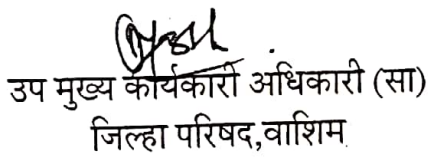 उप मुख्य कार्यकारी अधिकारी (सा)
जिल्हा परिषद,वाशिम